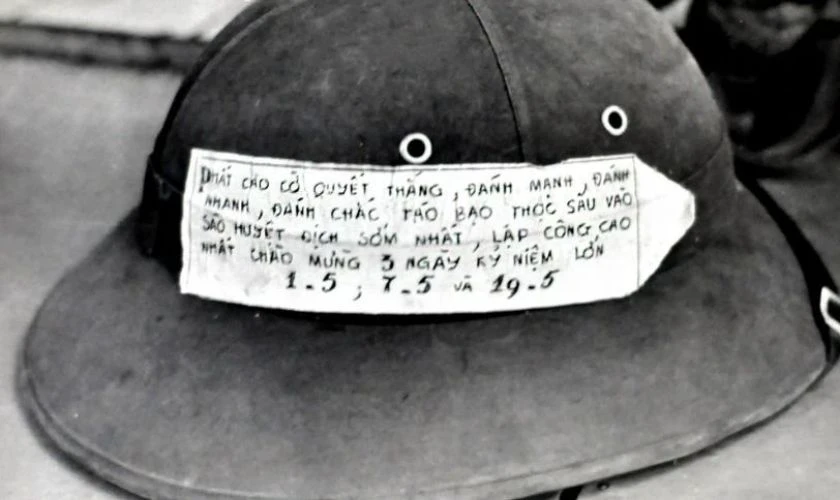 PHẤT CAO CỜ QUYẾT THẮNG, ĐÁNH MẠNH, ĐÁNH
NHANH, ĐÁNH CHẮC TÁO BẠO THỌC SÂU VÀO
SÀO HUYỆT ĐỊCH SỚM NHẤT, LẬP CÔNG CAO
NHẤT CHÀO MỪNG 3 NGÀY KỶ NIỆM LỚN
1-5; 7-5 VÀ 19-5